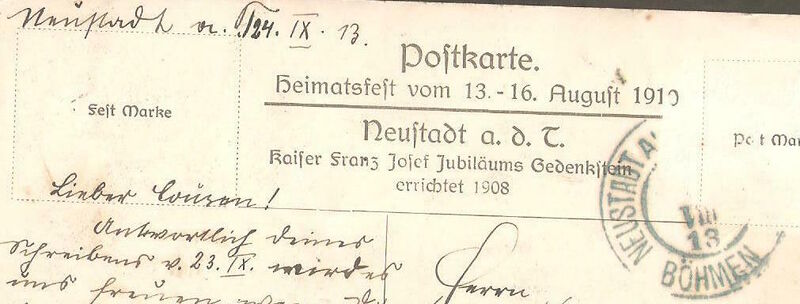 Neustadt a. T./24. IX. 13.
Postkarte.
Heimatsfest vom 13.-16. August 1910
Fest Marke
Neustadt a. d. T.
Kaiser Franz Josef Jubiläums Gedenkstein
errichtet 1908
Post Mar
NEUSTADT A
VIII
13
BÖHMEN
Lieber Cousen!
Antwortlich deines
Schreibens v. 23. IX. wird es
uns freuen
Herrn